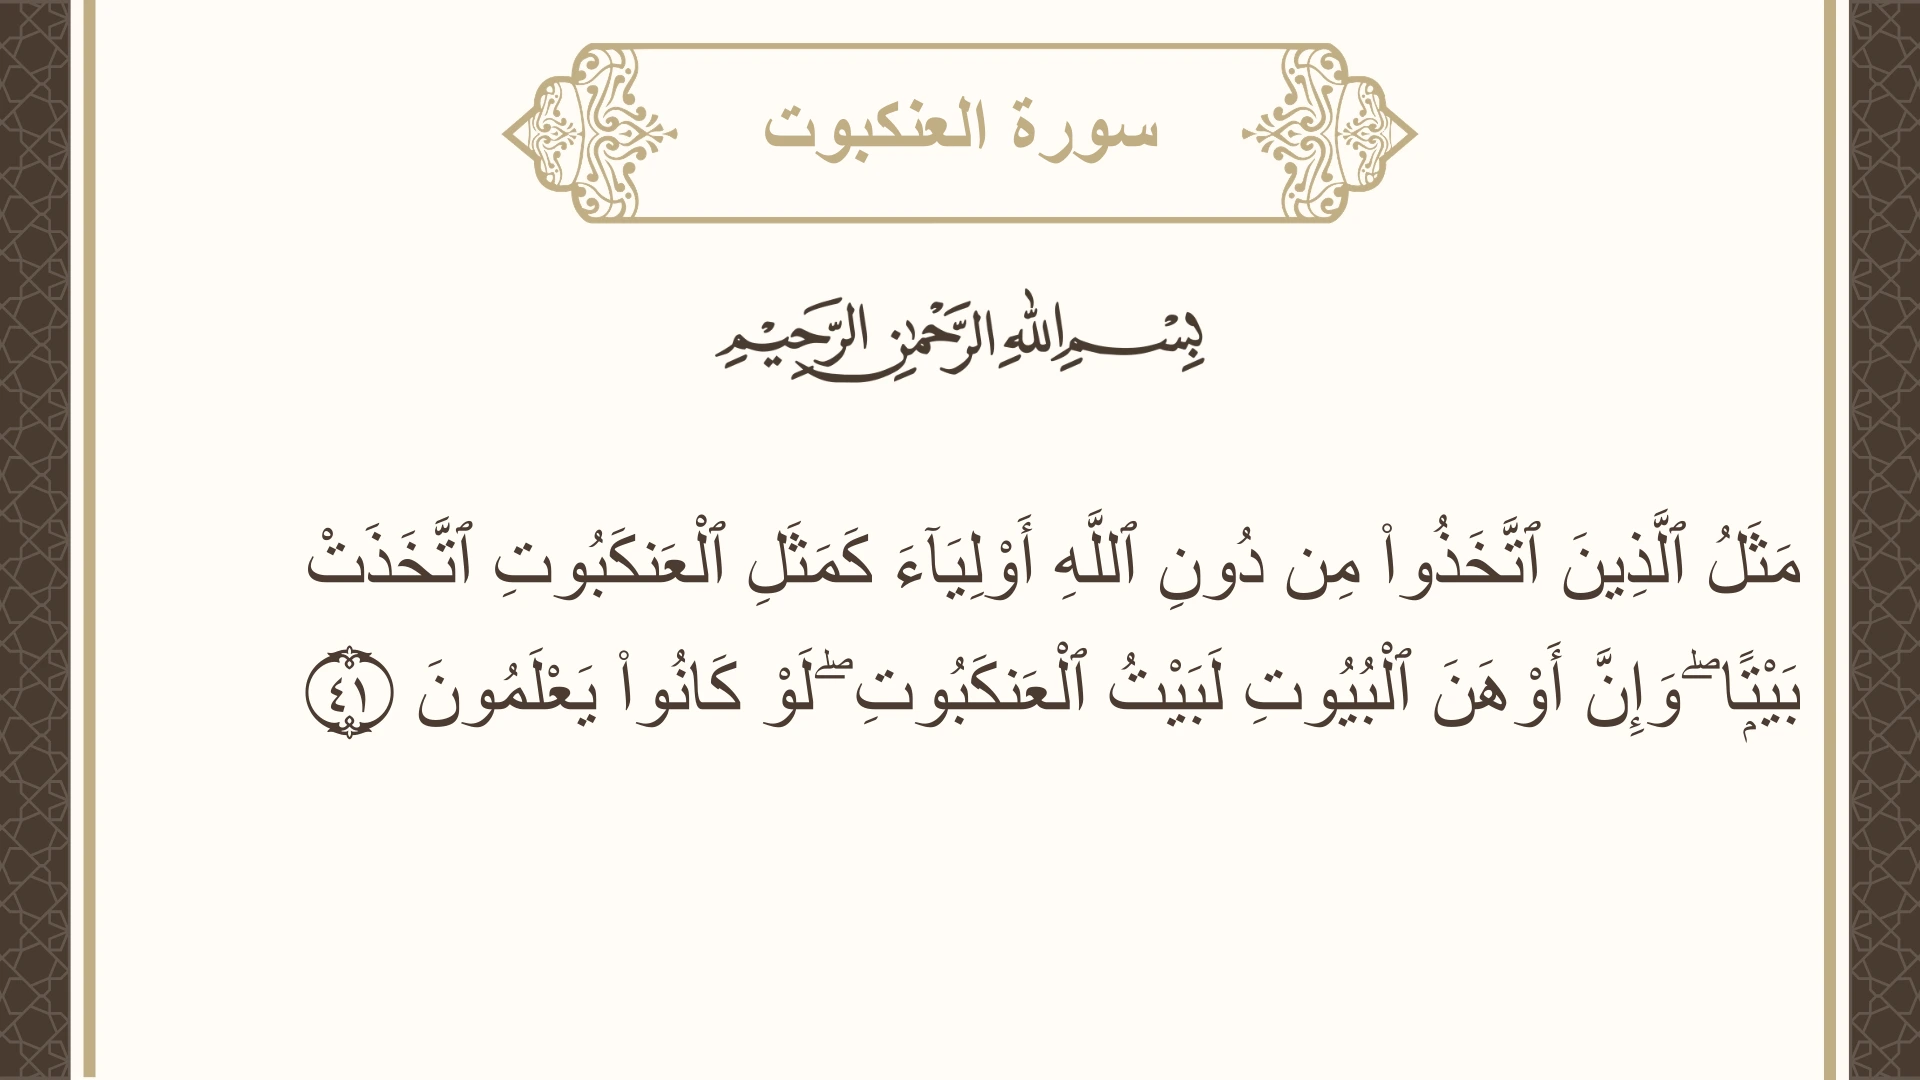 سورة العنكبوت
بِسْمِ اللهِ الرَّحْمٰنِ الرَّحِيْمِ
مَثَلُ ٱلَّذِينَ ٱتَّخَذُوا۟ مِن دُونِ ٱللَّهِ أَوْلِيَآءَ كَمَثَلِ ٱلْعَنكَبُوتِ ٱتَّخَذَتْ
بَيْتًۭا ۖ وَإِنَّ أَوْهَنَ ٱلْبُيُوتِ لَبَيْتُ ٱلْعَنكَبُوتِ ۖ لَوْ كَانُوا۟ يَعْلَمُونَ ٤١